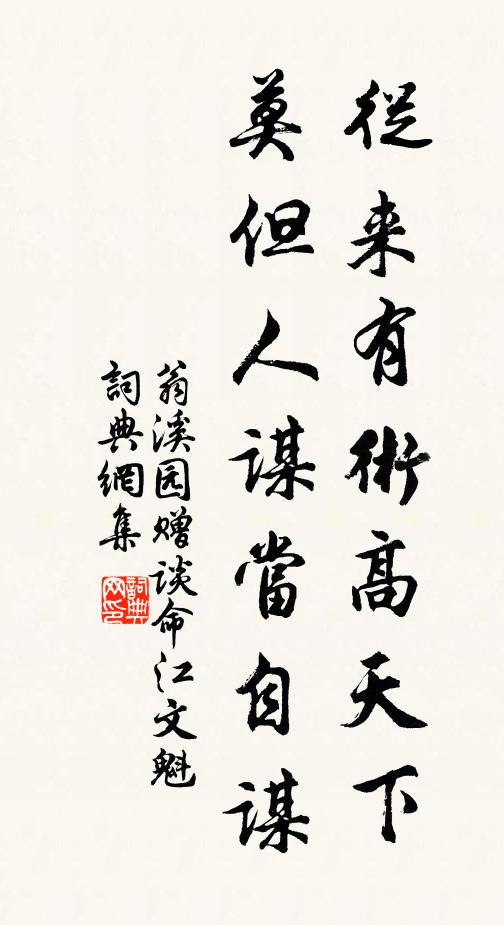 從来有術高天下
莫但人谋當自谋
翁溪园赠谈命江文魁
詞典網集
詞典
网印